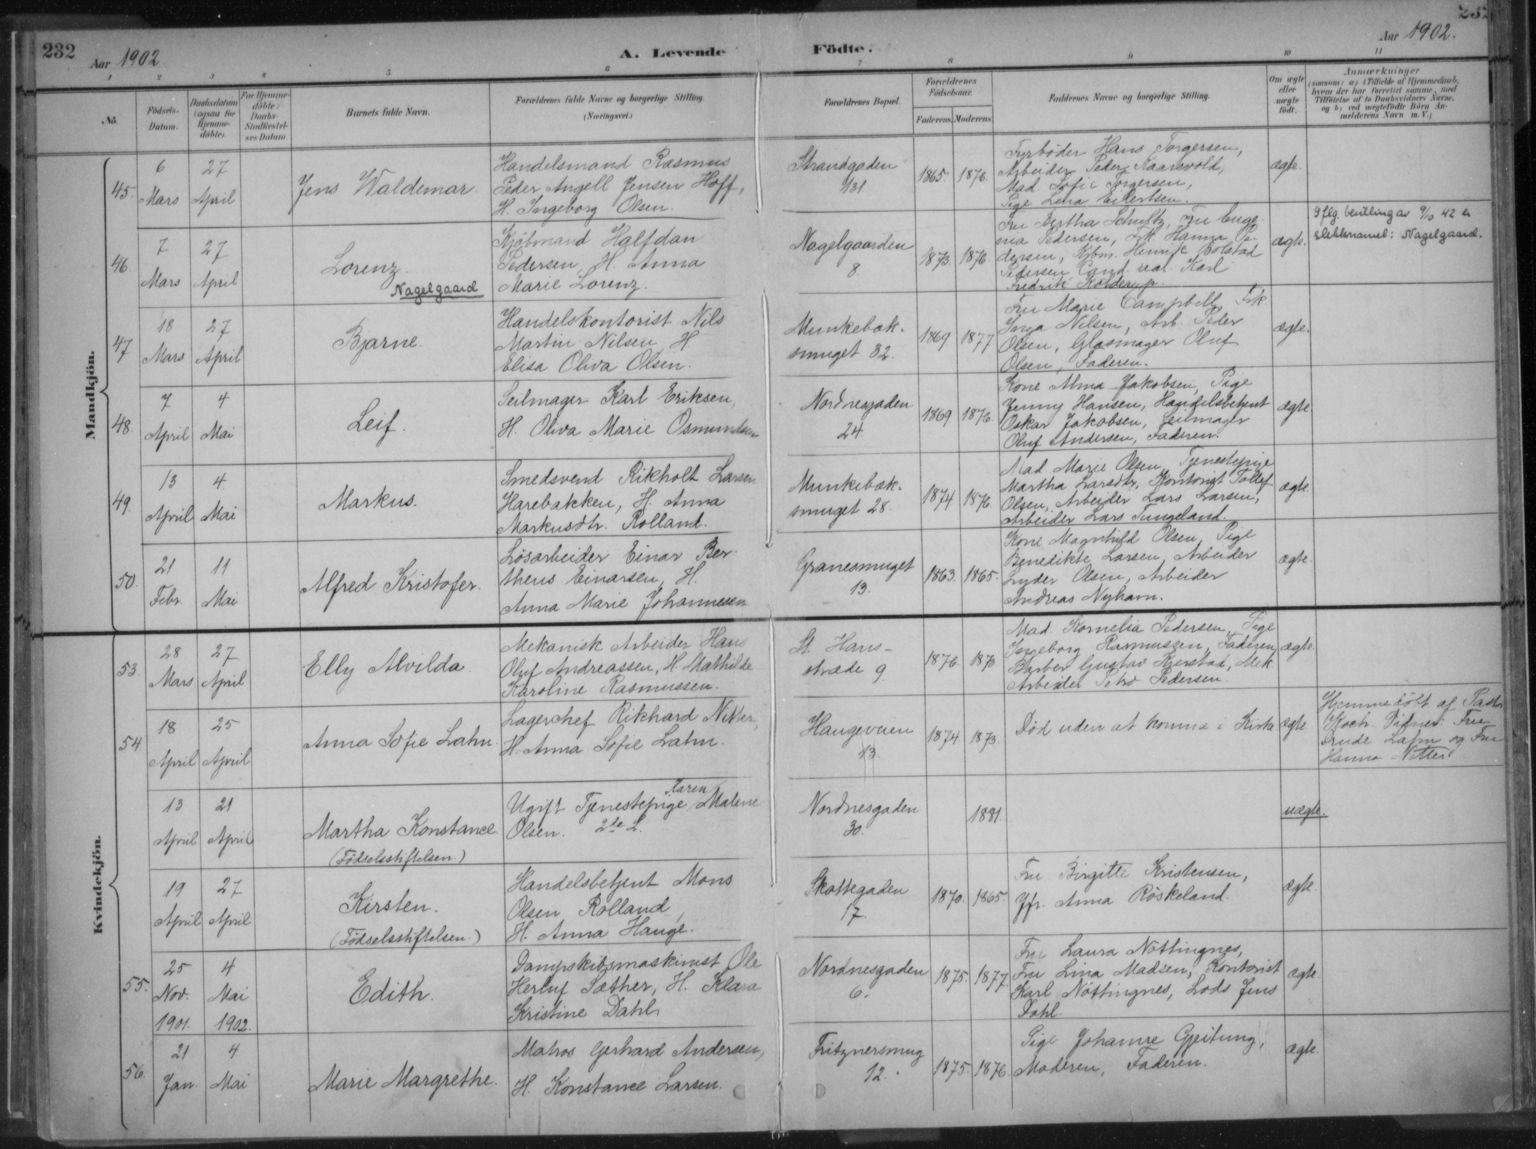 232
Aar 1902
A. Levende Fødte.
Aar 1902.
1 2 3 4 5 6 7 8 9 10 11
No.
Fødsels-Datum.
Daabsdatum (ogsaa for Hjemmedøbte).
For Hjemmedøbte: Daabs-Stadfæstelses Datum
Barnets fulde Navn.
Forældrenes fulde Navne og borgerlige Stilling.
(Næringsvei.)
Forældrenes Bopæl.
Forældrenes Fødselsaar.
Faderens. Moderens.
Faddernes Navne og borgerlige Stilling.
Om ægte eller uægte født.
Anmærkninger
(saasom: a) i Tilfælde af Hjemmedaab, hvem der har forrettet samme, med Tilføielse af to Daabsvidners Navne, og b) ved uægtefødte Børn Anmelderens Navn m. V.)
Mandkjön.
45.
6 Mars
27 April
Jens Waldemar.
Handelsmand Rasmus
Peder Angell Jensen Hoff,
H. Ingeborg Olsen.
Strandgaden
131
1865. 1876.
Fyrbøder Hans Torgersen,
Arbeider Peder Kaarsvold,
Mad Sofie Torgersen,
Pige Lina Eilertsen.
ægte.
46.
7 Mars
27 April
Lorenz.
Nagelgaard
Kjøbmand Halfdan
Pedersen, H. Anna
Marie Lorenz.
Nagelgaarden
8
1873. 1876.
Fru Bertha Schultz, Fru Euge-
nia Pedersen, Frk. Hanna Pe-
dersen, Kjbm. Henrik Bolstad
Pedersen, Cand. real. Karl
Fredrik Kolderup.
ægte.
Iflg. bevilling av 9/3 42 er
slektsnavnet: Nagelgaard.
47.
18 Mars
27 April
Bjarne.
Handelskontorist Nils
Martin Nilsen, H.
Elisa Oliva Olsen.
Munkebæk-
smuget 32.
1869 1877
Fru Marie Campbell, Frk.
Inga Nilsen, Arb. Peder
Olsen, Glasmager Oluf
Olsen, Faderen.
ægte.
48.
7 April
4 Mai
Leif.
Seilmager Karl Eriksen,
H. Oliva Marie Osmundsen
Nordnesgaden
24.
1869 1876.
Kone Alma Jakobsen, Pige
Jenny Hansen, Handelsbetjent
Oskar Jakobsen, Seilmager
Oluf Andersen, Faderen.
ægte.
49.
13 April
4 Mai
Markus.
Smedsvend Rikholt Larsen
Harebakken, H. Anna
Markusdtr. Rolland.
Munkebæk-
smuget 28.
1874 1876.
Mad Marie Olsen, Tjenestepige
Martha Larsdtr., Kontorist Tollef
Olsen, Arbeider Lars Larsen,
Arbeider Lars Tungeland.
ægte.
50.
21 Febr.
11 Mai
Alfred Kristofer.
Løsarbeider Einar Ber-
theus Einarsen, H.
Anna Marie Johannesen
Granesmuget
13.
1863. 1865.
Kone Magnhild Olsen, Pige
Benedikte Larsen, Arbeider
Lyder Olsen, Arbeider
Andreas Nyhavn.
ægte.
Kvindekjön.
53.
28 Mars
27 April
Elly Alvilda.
Mekanisk Arbeider Hans
Oluf Andreassen, H. Mathilde
Karoline Rasmussen.
St. Hans-
stræde 9.
1876. 1876
Mad Kornelia Pedersen, Pige
Ingeborg Rasmussen, Faderen,
Barber Gustav Bjerstad, Mek
Arbeider Petro Pedersen.
ægte.
54.
18 April
25 April
Anna Sofie Lahn.
Lagerchef Rikhard Nitter,
H. Anna Sofie Lahn.
Haugeveien
13.
1874 1873.
Død uden at komme i Kirke
ægte.
Hjemmedøbt af Pastor
Koch. Vidner: Fru
Trude Lahn og Fru
Hanna Nitter.
13 April
21 April
Martha Konstance.
(Fødselsstiftelsen.)
Ugift Tjenestepige Karen Maline
Olsen. 2de L.
Nordnesgaden
30.
1881.
uægte.
19 April
27 April
Kirsten.
(Fødselsstiftelsen.)
Handelsbetjent Mons
Olsen Rolland,
H. Anna Hauge.
Skottegaden
17
1870. 1865.
Fru Birgitte Kristensen,
Jfr. Anna Røskeland.
ægte.
55.
25 Nov. 1901.
4 Mai 1902.
Edith.
Dampskibsmaskinist Ole
Herluf Sæther, H. Klara
Kristine Dahl.
Nordnesgaden
6.
1875. 1877.
Fru Laura Nøttingnes,
Fru Lina Madsen, Kontorist
Karl Nøttingnes, Lods Jens
Dahl.
ægte.
56.
21 Jan.
4 Mai
Marie Margrethe.
Matros Gerhard Andersen,
H. Konstance Larsen.
Fritznersmug
12.
1875. 1876.
Pige Johanne Gjeitung,
Moderen, Faderen.
ægte.